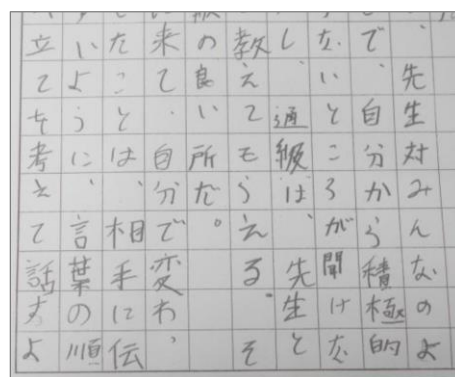 、先生対みんなのよ
で、自分から積極的
ない、ところが聞けな
し通級は、先生と
教えてもらえる。そ
の良い所だ。
来て、自分で変わっ
たことは、相手に伝
いように、言葉の順
立てを考えて話すよ